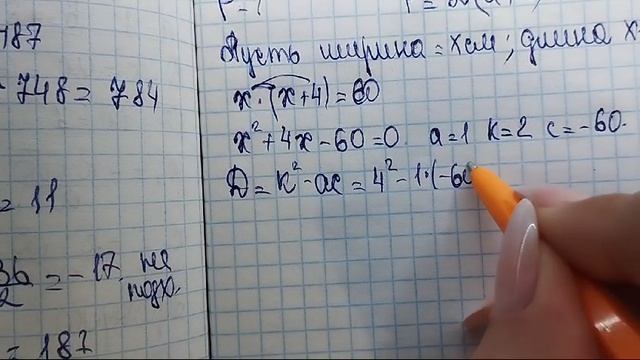 187
748 = 784
= 11
36/2 = -17 не подх.
= 187
Пусть ширина = x см; длина x
x · (x+4) = 60
x² + 4x - 60 = 0  a = 1  k = 2  c = -60.
D = k² - ac = 4² - 1·(-60